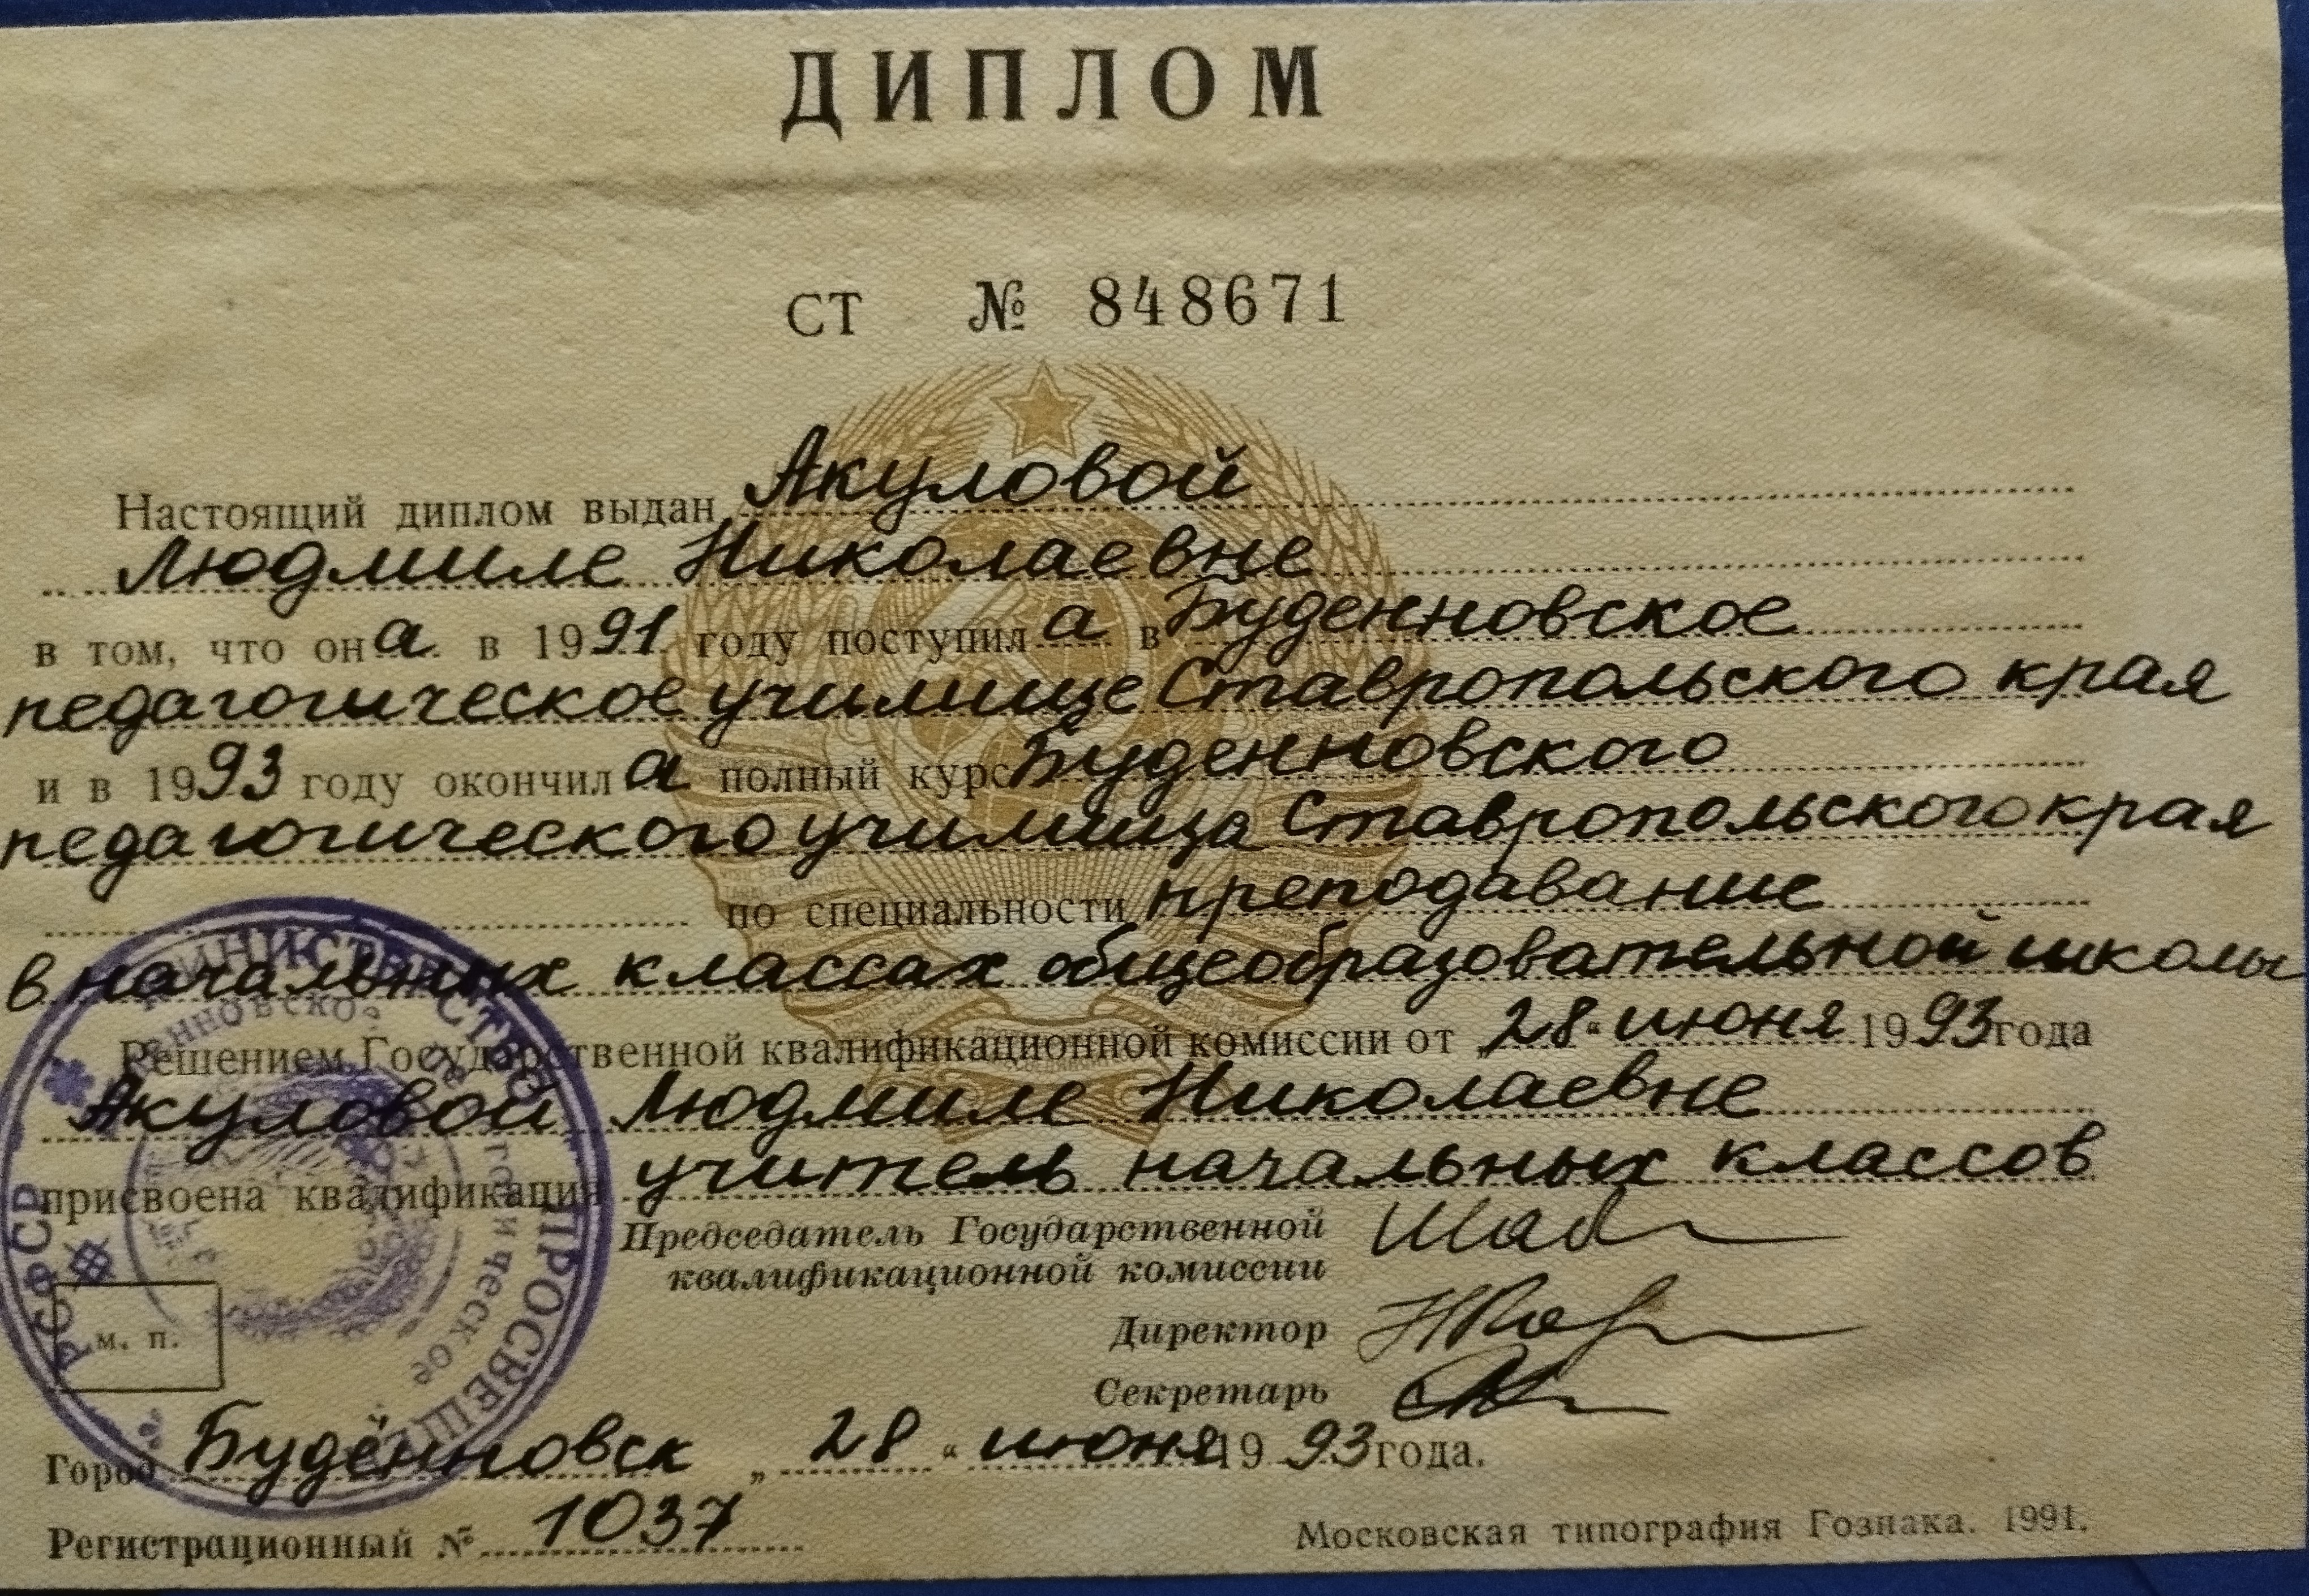 ДИПЛОМ
СТ № 848671
Настоящий диплом выдан Акуловой
Людмиле Николаевне
в том, что она в 1991 году поступила в Буденновское
педагогическое училище Ставропольского края
и в 1993 году окончила полный курс Буденновского
педагогического училища Ставропольского края
по специальности преподавание
в начальных классах общеобразовательной школы
Решением Государственной квалификационной комиссии от „28“ июня 1993 года
Акуловой Людмиле Николаевне
присвоена квалификация учитель начальных классов
Председатель Государственной
квалификационной комиссии
Директор
Секретарь
м. п.
Город Будённовск „28“ июня 1993 года.
Регистрационный № 1037
Московская типография Гознака. 1991.
МИНИСТЕРСТВО ПРОСВЕЩ
РСФСР